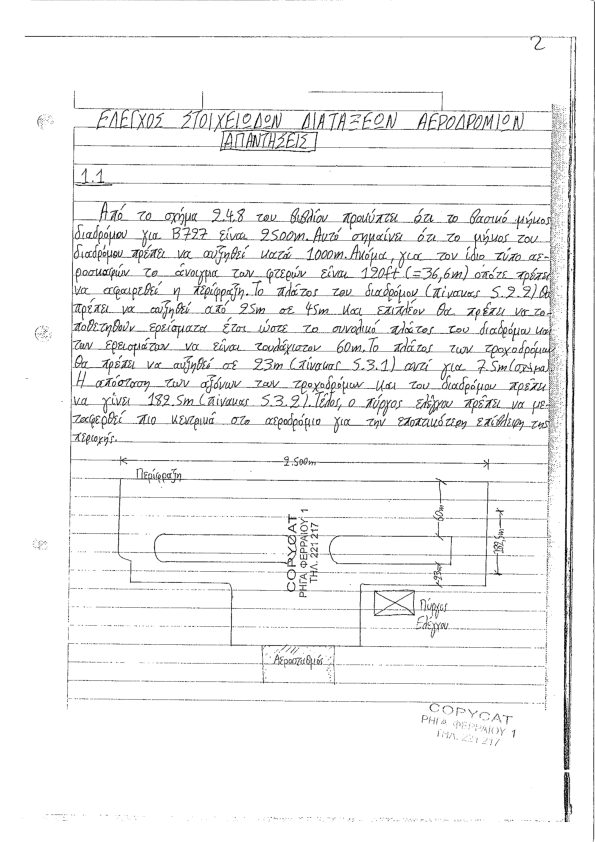 2
ΕΛΕΓΧΟΣ ΣΤΟΙΧΕΙΩΔΩΝ ΔΙΑΤΑΞΕΩΝ ΑΕΡΟΔΡΟΜΙΩΝ
ΑΠΑΝΤΗΣΕΙΣ
1.1
Από το σχήμα 2.4.8 του βιβλίου προκύπτει ότι το βασικό μήκος
διαδρόμου για B727 είναι 2500m. Αυτό σημαίνει ότι το μήκος του
διαδρόμου πρέπει να αυξηθεί κατά 1000m. Ακόμα, για τον ίδιο τύπο αε-
ροσκαφών το άνοιγμα των φτερών είναι 120ft (=36,6m) οπότε πρέπει
να αφαιρεθεί η περίφραξη. Το πλάτος του διαδρόμου (πίνακας 5.2.2) θα
πρέπει να αυξηθεί από 25m σε 45m και επιπλέον θα πρέπει να το-
ποθετηθούν ερείσματα έτσι ώστε το συνολικό πλάτος του διαδρόμου και
των ερεισμάτων να είναι τουλάχιστον 60m. Το πλάτος των τροχοδρόμων
θα πρέπει να αυξηθεί σε 23m (πίνακας 5.3.1) αντί για 7.5m (σχήμα)
Η απόσταση των αξόνων των τροχοδρόμων και του διαδρόμου πρέπει
να γίνει 182.5m (πίνακας 5.3.2). Τέλος, ο πύργος ελέγχου πρέπει να με-
ταφερθεί πιο κεντρικά στο αεροδρόμιο για την εποπτικότερη επίβλεψη της
περιοχής.
2.500m
Περίφραξη
60m
182,5m
23m
COPYCAT
ΡΗΓΑ ΦΕΡΡΑΙΟΥ 1
ΤΗΛ. 221 217
Πύργος
Ελέγχου
Αεροσταθμός
COPYCAT
ΡΗΓΑ ΦΕΡΡΑΙΟΥ 1
ΤΗΛ. 221 217